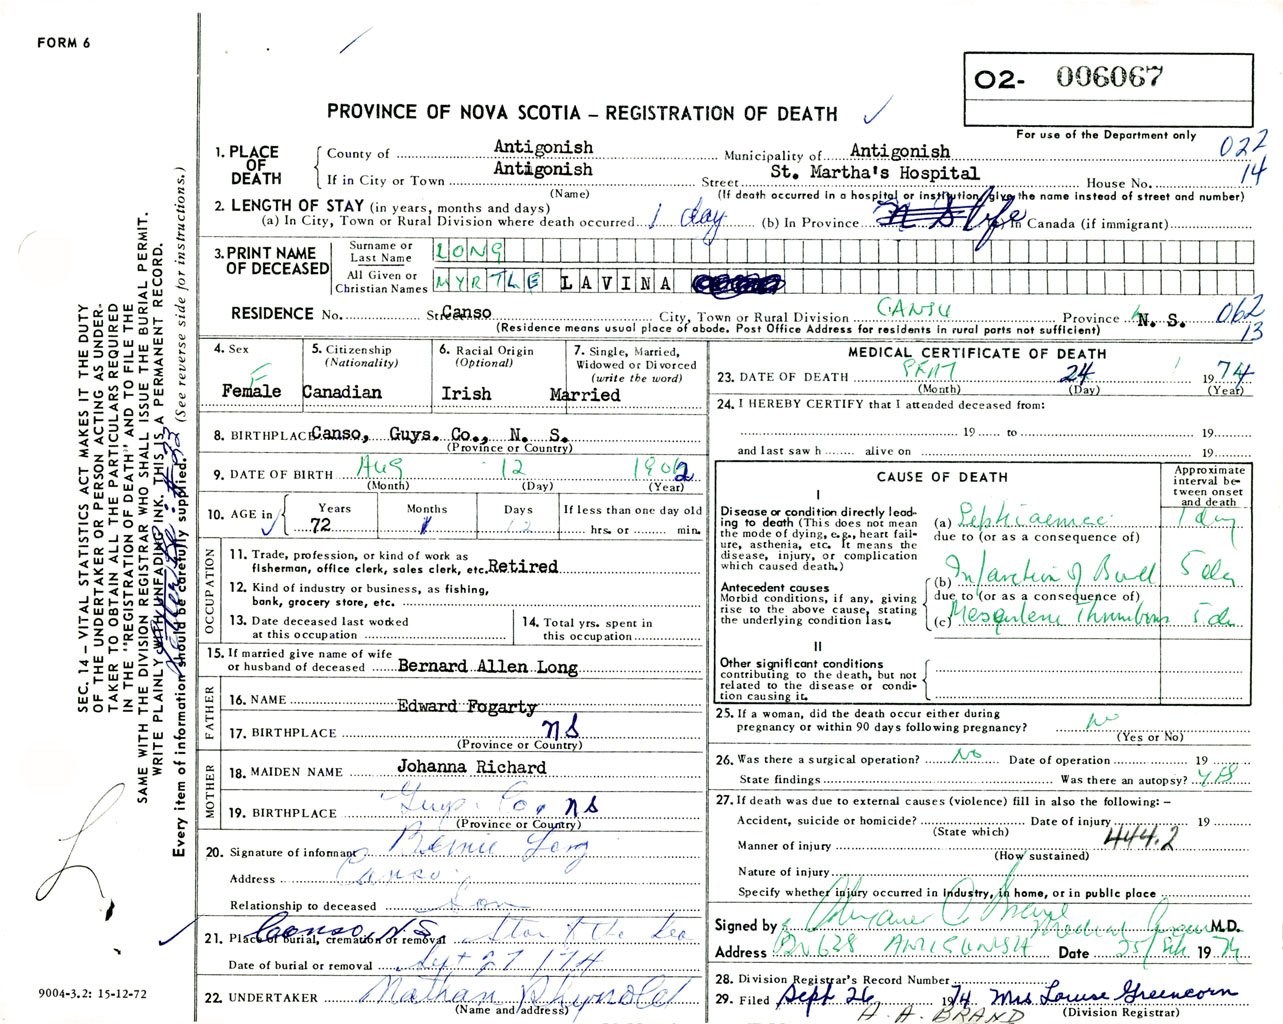 FORM 6
O2- 006067
PROVINCE OF NOVA SCOTIA – REGISTRATION OF DEATH
For use of the Department only
022
14
1. PLACE OF DEATH
County of Antigonish Municipality of Antigonish
If in City or Town Antigonish Street St. Martha's Hospital House No.
(Name) (If death occurred in a hospital or institution, give the name instead of street and number)
2. LENGTH OF STAY (in years, months and days)
(a) In City, Town or Rural Division where death occurred 1 day (b) In Province N S life (c) In Canada (if immigrant)
3. PRINT NAME OF DECEASED
Surname or Last Name LONG
All Given or Christian Names MYRTLE LAVINA
RESIDENCE No. Street Canso City, Town or Rural Division CANSO Province N. S. 062
13
(Residence means usual place of abode. Post Office Address for residents in rural parts not sufficient)
4. Sex F Female
5. Citizenship (Nationality) Canadian
6. Racial Origin (Optional) Irish
7. Single, Married, Widowed or Divorced (write the word) Married
8. BIRTHPLACE Canso, Guys. Co., N. S.
(Province or Country)
9. DATE OF BIRTH Aug 12 1902
(Month) (Day) (Year)
10. AGE in Years 72 Months 1 Days 12 If less than one day old hrs. or min.
OCCUPATION
11. Trade, profession, or kind of work as fisherman, office clerk, sales clerk, etc. Retired
12. Kind of industry or business, as fishing, bank, grocery store, etc.
13. Date deceased last worked at this occupation
14. Total yrs. spent in this occupation
15. If married give name of wife or husband of deceased Bernard Allen Long
FATHER
16. NAME Edward Fogarty
17. BIRTHPLACE NS
(Province or Country)
MOTHER
18. MAIDEN NAME Johanna Richard
19. BIRTHPLACE Guys. Co, NS
(Province or Country)
20. Signature of informant Bernie Long
Address Canso
Relationship to deceased Son
21. Place of burial, cremation or removal Canso, N.S. Star of the Sea
Date of burial or removal Sept 27 / 74
22. UNDERTAKER Nathan
(Name and address)
MEDICAL CERTIFICATE OF DEATH
23. DATE OF DEATH SEPT 24 1974
(Month) (Day) (Year)
24. I HEREBY CERTIFY that I attended deceased from:
19 to 19
and last saw h alive on 19
CAUSE OF DEATH
Approximate interval between onset and death
I
Disease or condition directly leading to death (This does not mean the mode of dying, e.g., heart failure, asthenia, etc. It means the disease, injury, or complication which caused death.)
(a) Septicaemia 1 day
due to (or as a consequence of)
Antecedent causes
Morbid conditions, if any, giving rise to the above cause, stating the underlying condition last.
(b) Infarction of Bowel 5 day
due to (or as a consequence of)
(c) Thrombosis 5 da
II
Other significant conditions contributing to the death, but not related to the disease or condition causing it.
25. If a woman, did the death occur either during pregnancy or within 90 days following pregnancy? No
(Yes or No)
26. Was there a surgical operation? No Date of operation 19
State findings Was there an autopsy? YES
27. If death was due to external causes (violence) fill in also the following: –
Accident, suicide or homicide? Date of injury 19
(State which)
444.2
Manner of injury
(How sustained)
Nature of injury
Specify whether injury occurred in industry, in home, or in public place
Signed by Medical M.D.
Address Bx 628 ANTIGONISH Date 25/ 1974
28. Division Registrar's Record Number
29. Filed Sept 26 1974 Mrs. Louise Greencorn
(Division Registrar)
H. A. BRAND
SEC. 14 – VITAL STATISTICS ACT MAKES IT THE DUTY
OF THE UNDERTAKER OR PERSON ACTING AS UNDER-
TAKER TO OBTAIN ALL THE PARTICULARS REQUIRED
IN THE "REGISTRATION OF DEATH" AND TO FILE THE
SAME WITH THE DIVISION REGISTRAR WHO SHALL ISSUE THE BURIAL PERMIT.
WRITE PLAINLY WITH UNFADING INK. THIS IS A PERMANENT RECORD.
Every item of information should be carefully supplied. (See reverse side for instructions.)
9004-3.2: 15-12-72